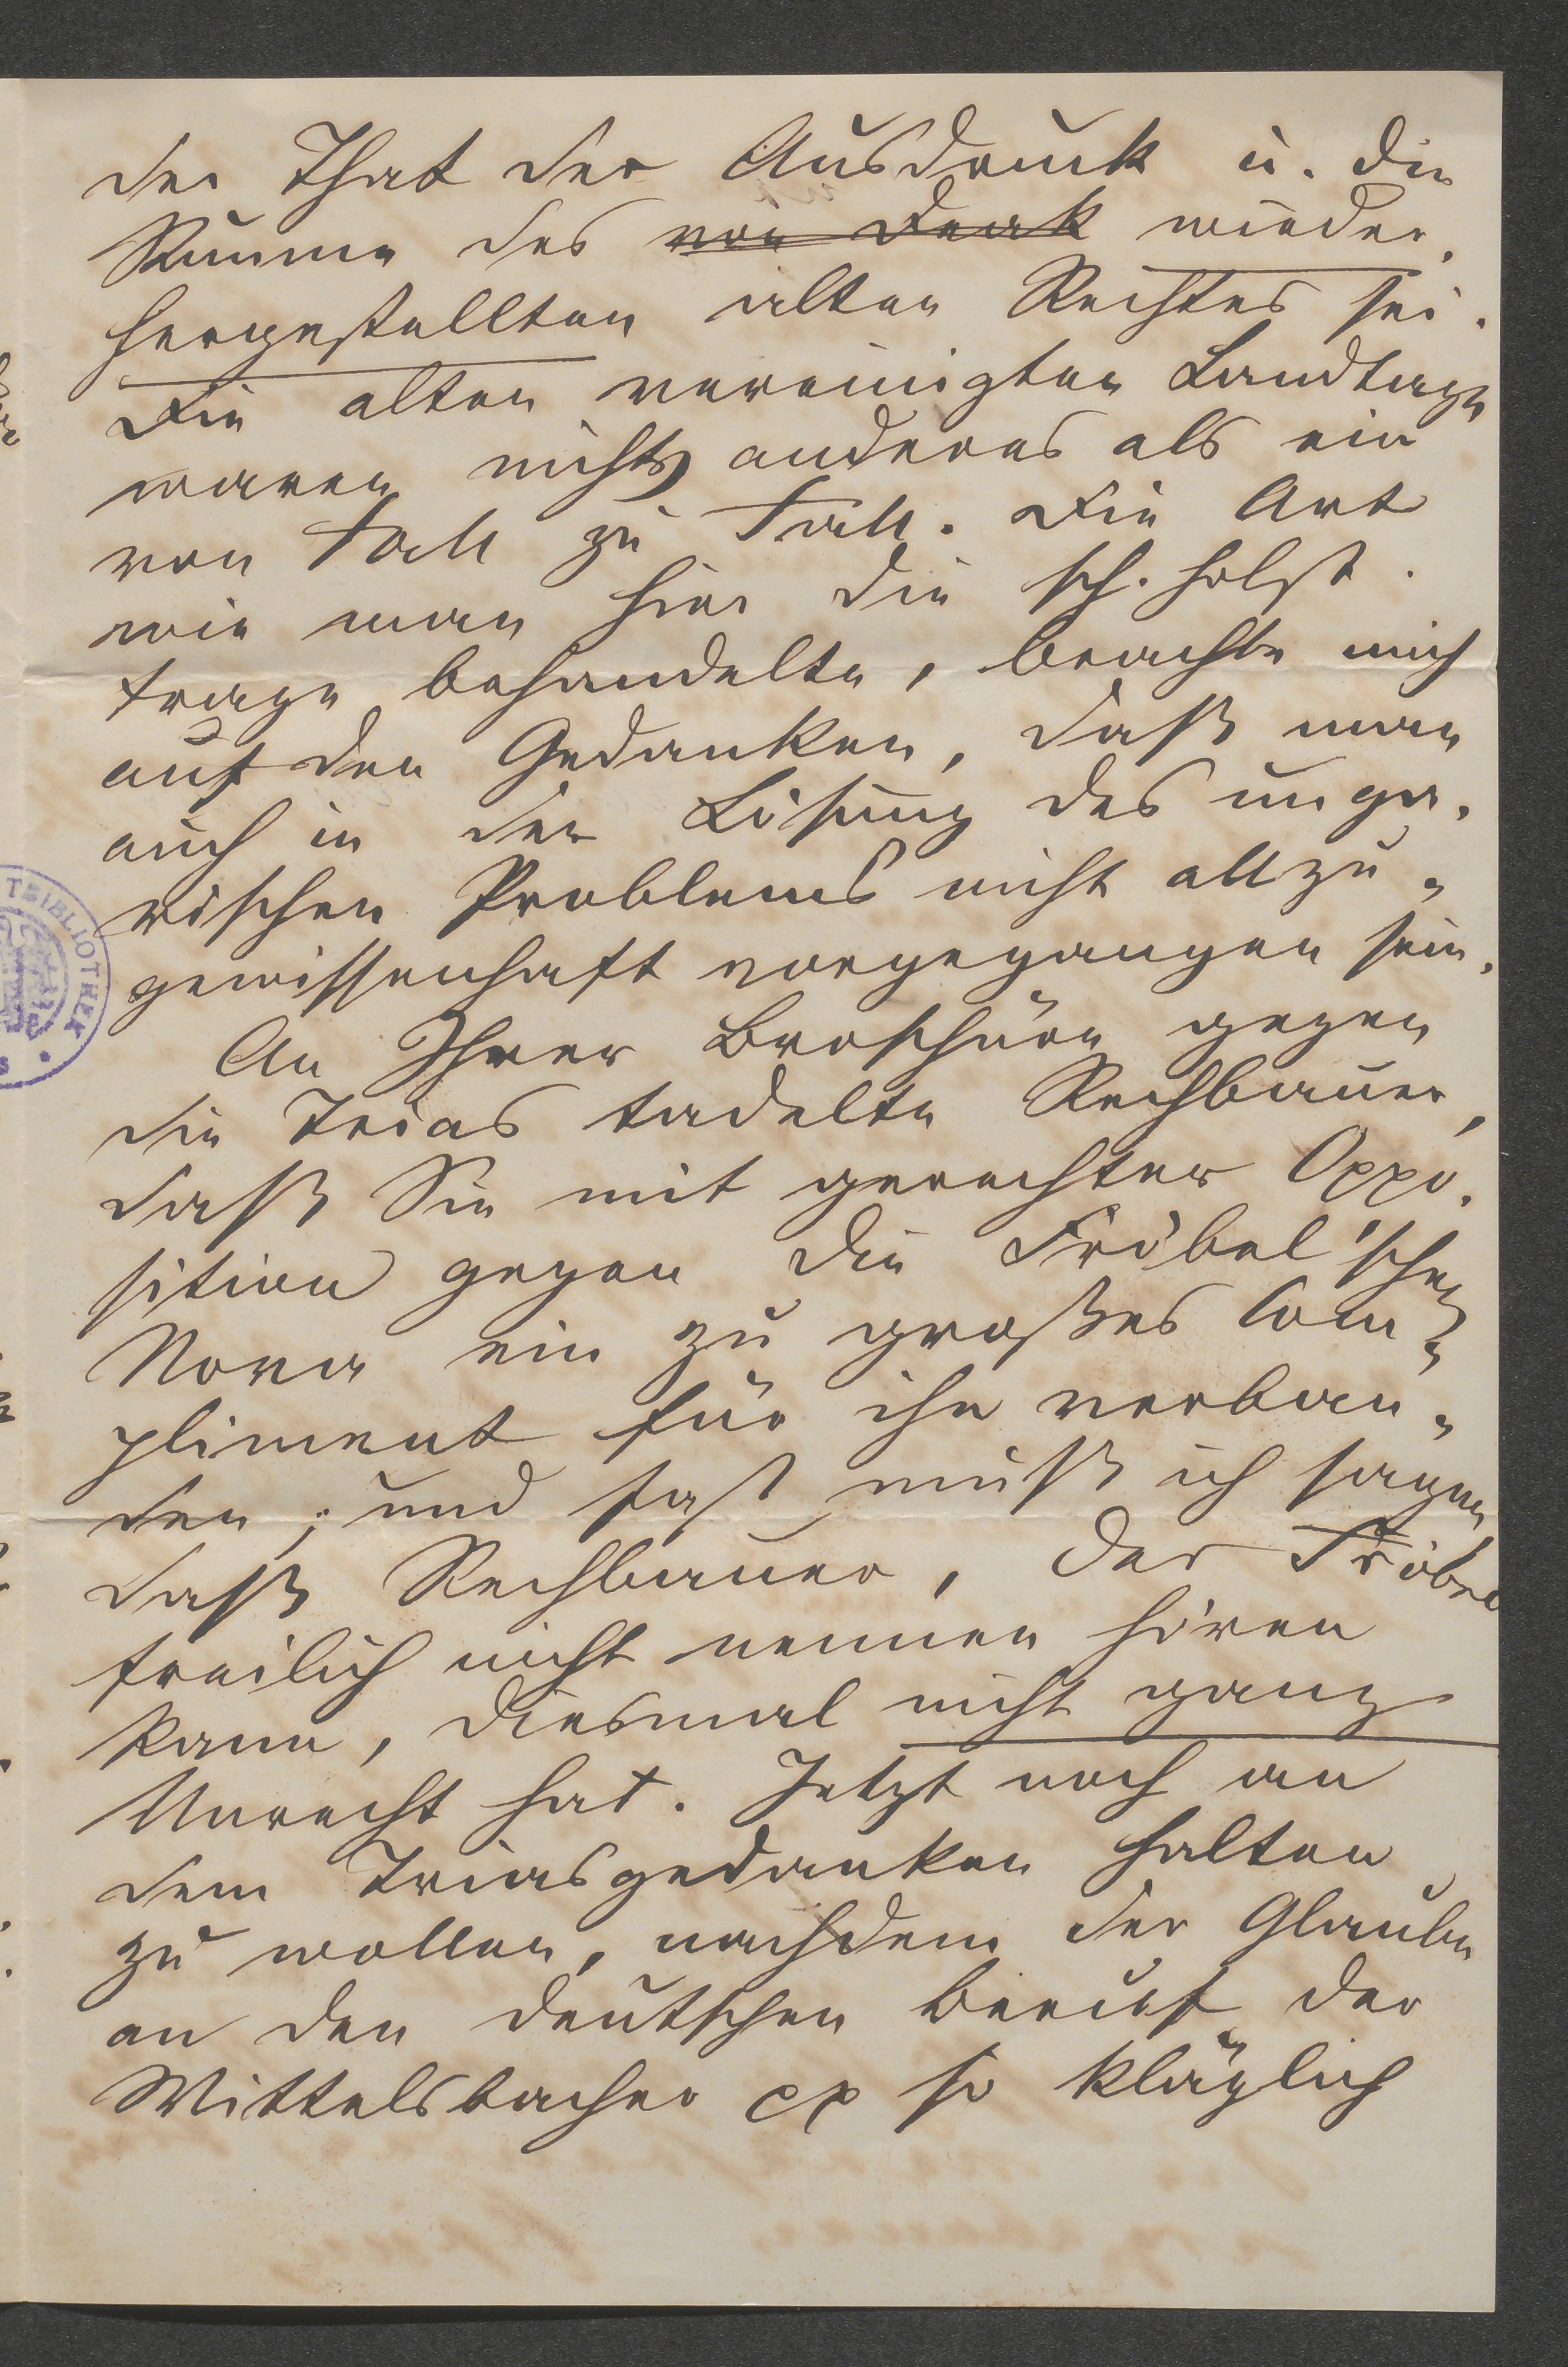 der That der Ausdruck u. die
Summe des von Deak wieder-
hergestellten alten Rechtes sei.
Die alten vereinigten Landtage
waren nichts anderes als ein
von Fall zu Fall. Die Art
wie man hier die sch. holst.
Frage behandelte, brachte mich
auf den Gedanken, daß man
auch in der Lösung des unga-
rischen Problems nicht allzu-
gewissenhaft vorgegangen sein.
An Ihrer Broschüre gegen
die Trias tadelte Rechbauer,
daß Sie mit gerechter Oppo-
sition gegen die Fröbel'schen
Nova ein zu großes Com-
pliment für ihn verban-
den; und fast muß ich sagen,
daß Rechbauer, der Fröbel
freilich nicht nennen hören
kann, diesmal nicht ganz
Unrecht hat. Jetzt noch an
dem Triasgedanken halten
zu wollen, nachdem der Glaube
an den deutschen Beruf der
Wittelsbacher pp so kläglich
TSBIBLIOTHEK